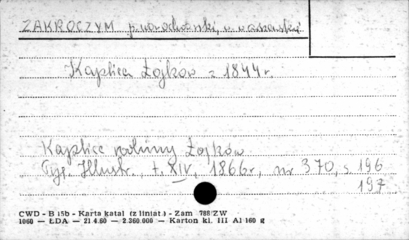 ZAKROCZYM p. nowodworski, w. warszawskie
Kaplica Łojków z 1844 r.
Kaplice rodziny Łojków
Tyg. Illustr., t. XIV, 1866 r., nr 370, s. 196
197
CWD - B 15b - Karta katal (z liniat.) - Zam 788/ZW
1060 — ŁDA — 21.4.60 — 2.360.000 — Karton kl. III A1 160 g